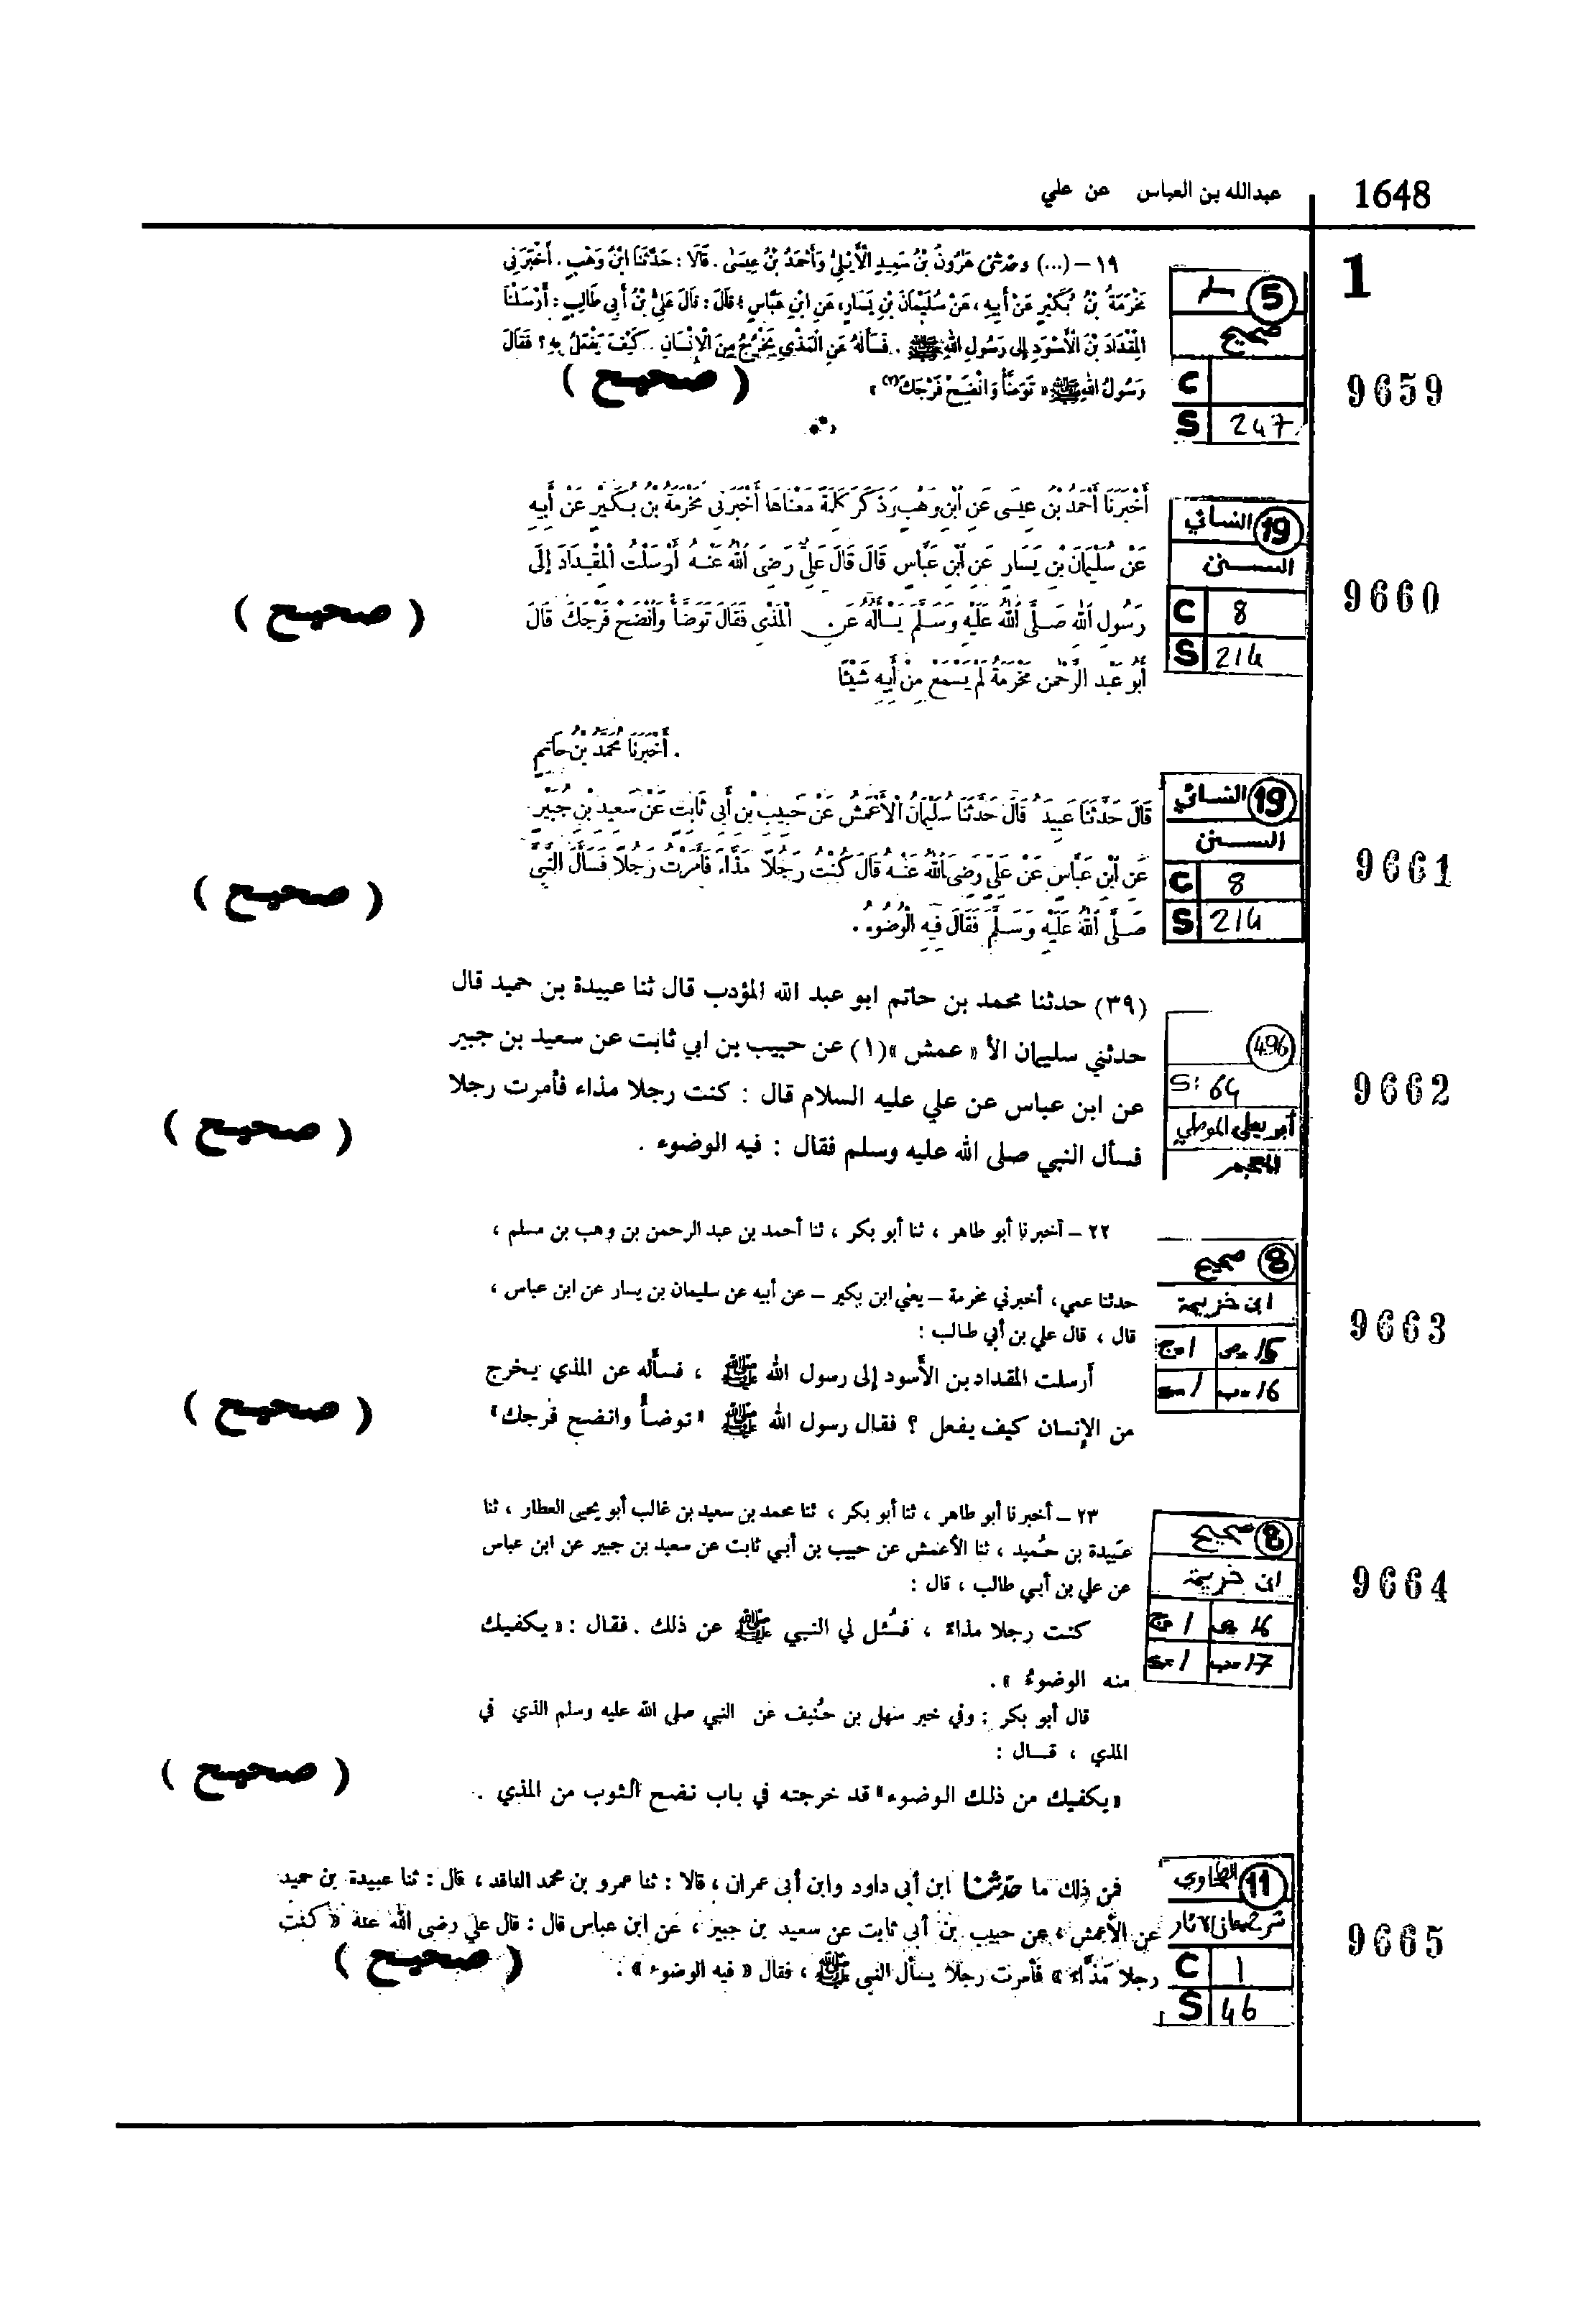 1648
عبدالله بن العباس عن علي
1
١٩ – (...) وحدثني هَرُونُ بْنُ سَعِيدٍ الْأَيْلِيُّ وَأَحْمَدُ بْنُ عِيسَى. قَالَا: حَدَّثَنَا ابْنُ وَهْبٍ. أَخْبَرَنِي
مَخْرَمَةُ بْنُ بُكَيْرٍ عَنْ أَبِيهِ، عَنْ سُلَيْمَانَ بْنِ يَسَارٍ، عَنِ ابْنِ عَبَّاسٍ؛ قَالَ: قَالَ عَلِيُّ بْنُ أَبِي طَالِبٍ: أَرْسَلْنَا
الْمِقْدَادَ بْنَ الْأَسْوَدِ إِلَى رَسُولِ اللهِ ﷺ. فَسَأَلَهُ عَنِ الْمَذْيِ يَخْرُجُ مِنَ الْإِنْسَانِ. كَيْفَ يَفْعَلُ بِهِ؟ فَقَالَ
رَسُولُ اللهِ ﷺ « تَوَضَّأْ وَانْضَحْ فَرْجَكَ(٢) »
( صحيح )
5 مسلم
صحيح
C
S 247
9659
أَخْبَرَنَا أَحْمَدُ بْنُ عِيسَى عَنِ ابْنِ وَهْبٍ وَذَكَرَ كَلِمَةً مَعْنَاهَا أَخْبَرَنِي مَخْرَمَةُ بْنُ بُكَيْرٍ عَنْ أَبِيهِ
عَنْ سُلَيْمَانَ بْنِ يَسَارٍ عَنِ ابْنِ عَبَّاسٍ قَالَ قَالَ عَلِيٌّ رَضِيَ اللهُ عَنْهُ أَرْسَلْتُ الْمِقْدَادَ إِلَى
رَسُولِ اللهِ صَلَّى اللهُ عَلَيْهِ وَسَلَّمَ يَسْأَلُهُ عَنِ الْمَذْيِ فَقَالَ تَوَضَّأْ وَانْضَحْ فَرْجَكَ قَالَ
أَبُو عَبْدِ الرَّحْمَنِ مَخْرَمَةُ لَمْ يَسْمَعْ مِنْ أَبِيهِ شَيْئًا
( صحيح )
19 النسائي
السنن
C 8
S 214
9660
. أَخْبَرَنَا مُحَمَّدُ بْنُ حَاتِمٍ
قَالَ حَدَّثَنَا عَبِيدَةُ قَالَ حَدَّثَنَا سُلَيْمَانُ الْأَعْمَشُ عَنْ حَبِيبِ بْنِ أَبِي ثَابِتٍ عَنْ سَعِيدِ بْنِ جُبَيْرٍ
عَنِ ابْنِ عَبَّاسٍ عَنْ عَلِيٍّ رَضِيَ اللهُ عَنْهُ قَالَ كُنْتُ رَجُلًا مَذَّاءً فَأَمَرْتُ رَجُلًا فَسَأَلَ النَّبِيَّ
صَلَّى اللهُ عَلَيْهِ وَسَلَّمَ فَقَالَ فِيهِ الْوُضُوءُ .
( صحيح )
19 النسائي
السنن
C 8
S 214
9661
(٣٩) حدثنا محمد بن حاتم ابو عبد الله المؤدب قال ثنا عبيدة بن حميد قال
حدثني سليمان الأ « عمش »(١) عن حبيب بن ابي ثابت عن سعيد بن جبير
عن ابن عباس عن علي عليه السلام قال : كنت رجلا مذاء فأمرت رجلا
فسأل النبي صلى الله عليه وسلم فقال : فيه الوضوء .
( صحيح )
496
S: 64
أبو يعلى الموصلي
المعجم
9662
٢٢ – أخبرنا أبو طاهر ، ثنا أبو بكر ، ثنا أحمد بن عبد الرحمن بن وهب بن مسلم ،
حدثنا عمي، أخبرني مخرمة – يعني ابن بكير – عن أبيه عن سليمان بن يسار عن ابن عباس ،
قال ، قال علي بن أبي طالب :
أرسلت المقداد بن الأسود إلى رسول الله ﷺ ، فسأله عن المذي يخرج
من الإنسان كيف يفعل ؟ فقال رسول الله ﷺ «توضأ وانضح فرجك»
( صحيح )
8 صحيح
ابن خزيمة
ص 15 ج 1
16 1
9663
٢٣ – أخبرنا أبو طاهر ، ثنا أبو بكر ، ثنا محمد بن سعيد بن غالب أبو يحيى العطار ، ثنا
عَبيدة بن حُميد ، ثنا الأعمش عن حبيب بن أبي ثابت عن سعيد بن جبير عن ابن عباس
عن علي بن أبي طالب ، قال :
كنت رجلا مذاءً ، فسُئل لي النبي ﷺ عن ذلك . فقال : « يكفيك
منه الوضوءُ » .
قال أبو بكر : وفي خبر سهل بن حُنيف عن النبي صلى الله عليه وسلم الذي في
المذي ، قال :
«يكفيك من ذلك الوضوء» قد خرجته في باب نضح الثوب من المذي .
( صحيح )
8 صحيح
ابن خزيمة
ص 16 ج 1
17 1
9664
فمن ذلك ما حدثنا ابن أبي داود وابن أبي عمران ، قالا : ثنا عمرو بن محمد الناقد ، قال : ثنا عبيدة بن حميد
عن الأعمش ، عن حبيب بن أبي ثابت عن سعيد بن جبير ، عن ابن عباس قال : قال علي رضى الله عنه « كنت
رجلا مَذَّاءً » فأمرت رجلا يسأل النبي ﷺ ، فقال « فيه الوضوء » .
( صحيح )
11 الطحاوي
شرح معاني الآثار
C 1
S 46
9665